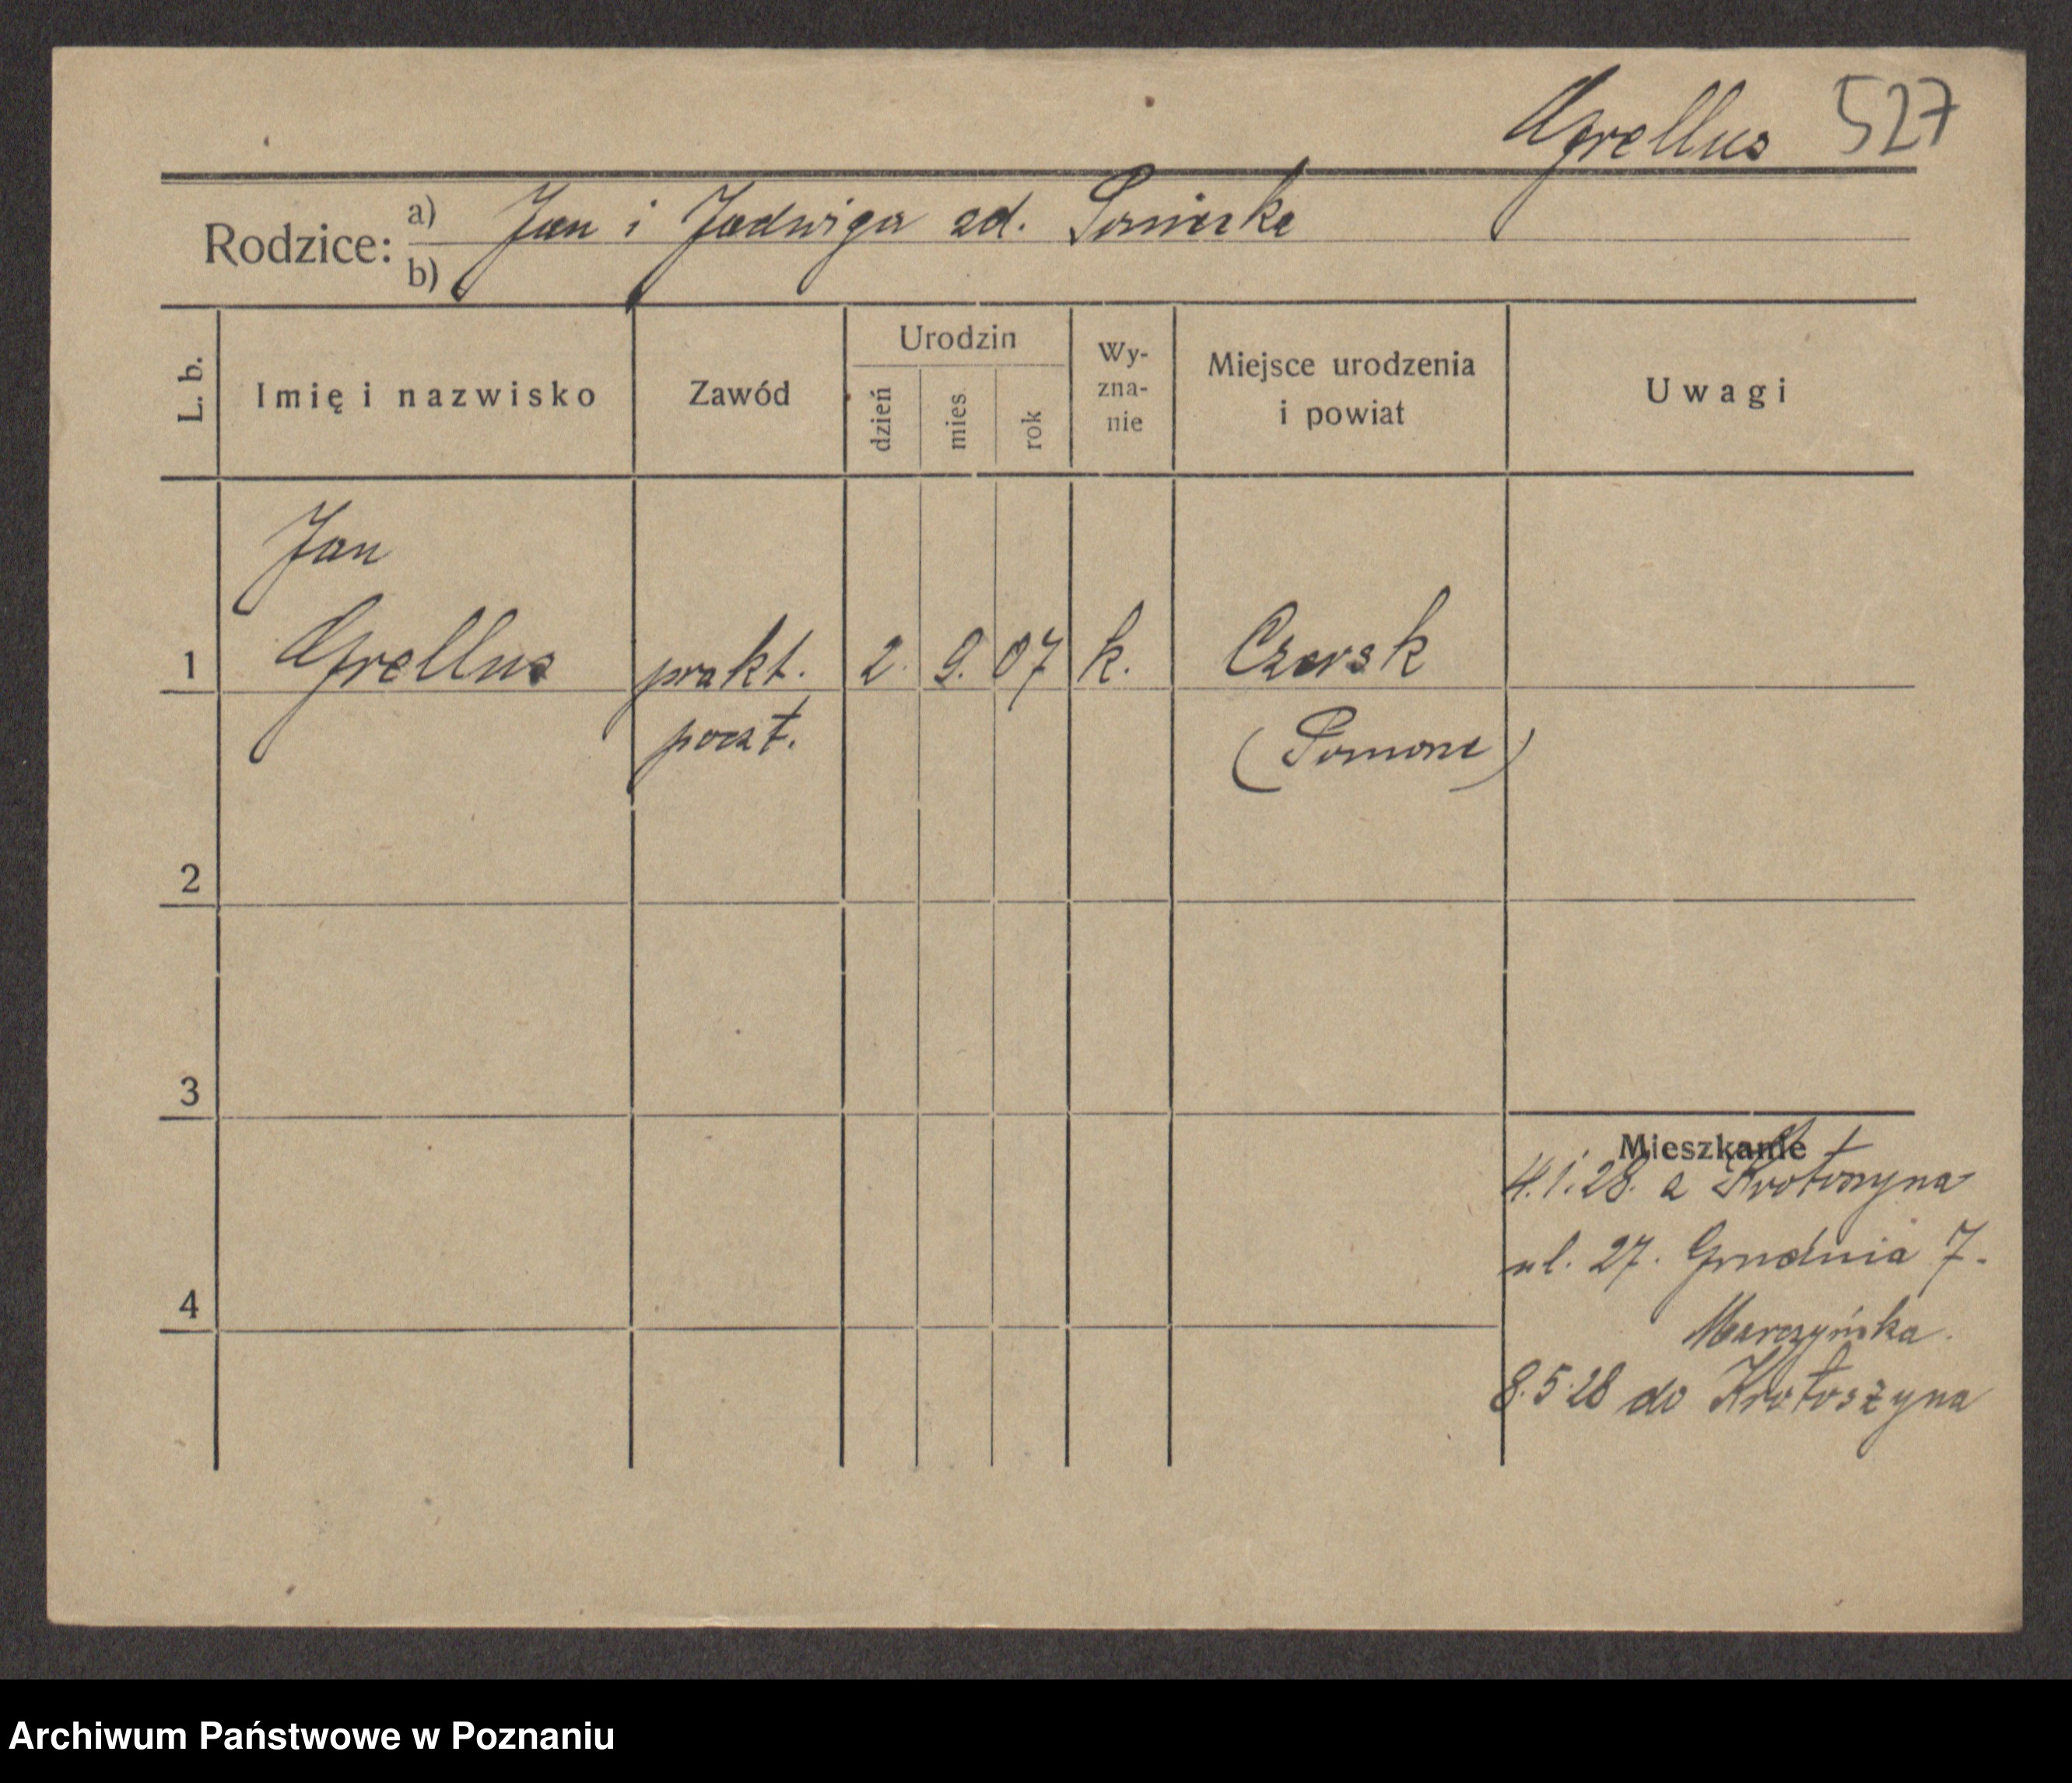 Grellus 527
Rodzice: a) Jan i Jadwiga zd.
b)
L. b. Imię i nazwisko Zawód Urodzin dzień mies. rok Wy-zna-nie Miejsce urodzenia i powiat Uwagi
Jan
1 Grellus prakt. 2. 9. 07 k. Czersk
poczt. (Pomorze)
2
3
Mieszkanie
4.1.28. z Krotoszyna
ul. 27. Grudnia 7.
4
Marczyńska.
8.5.28 do Krotoszyna
Archiwum Państwowe w Poznaniu